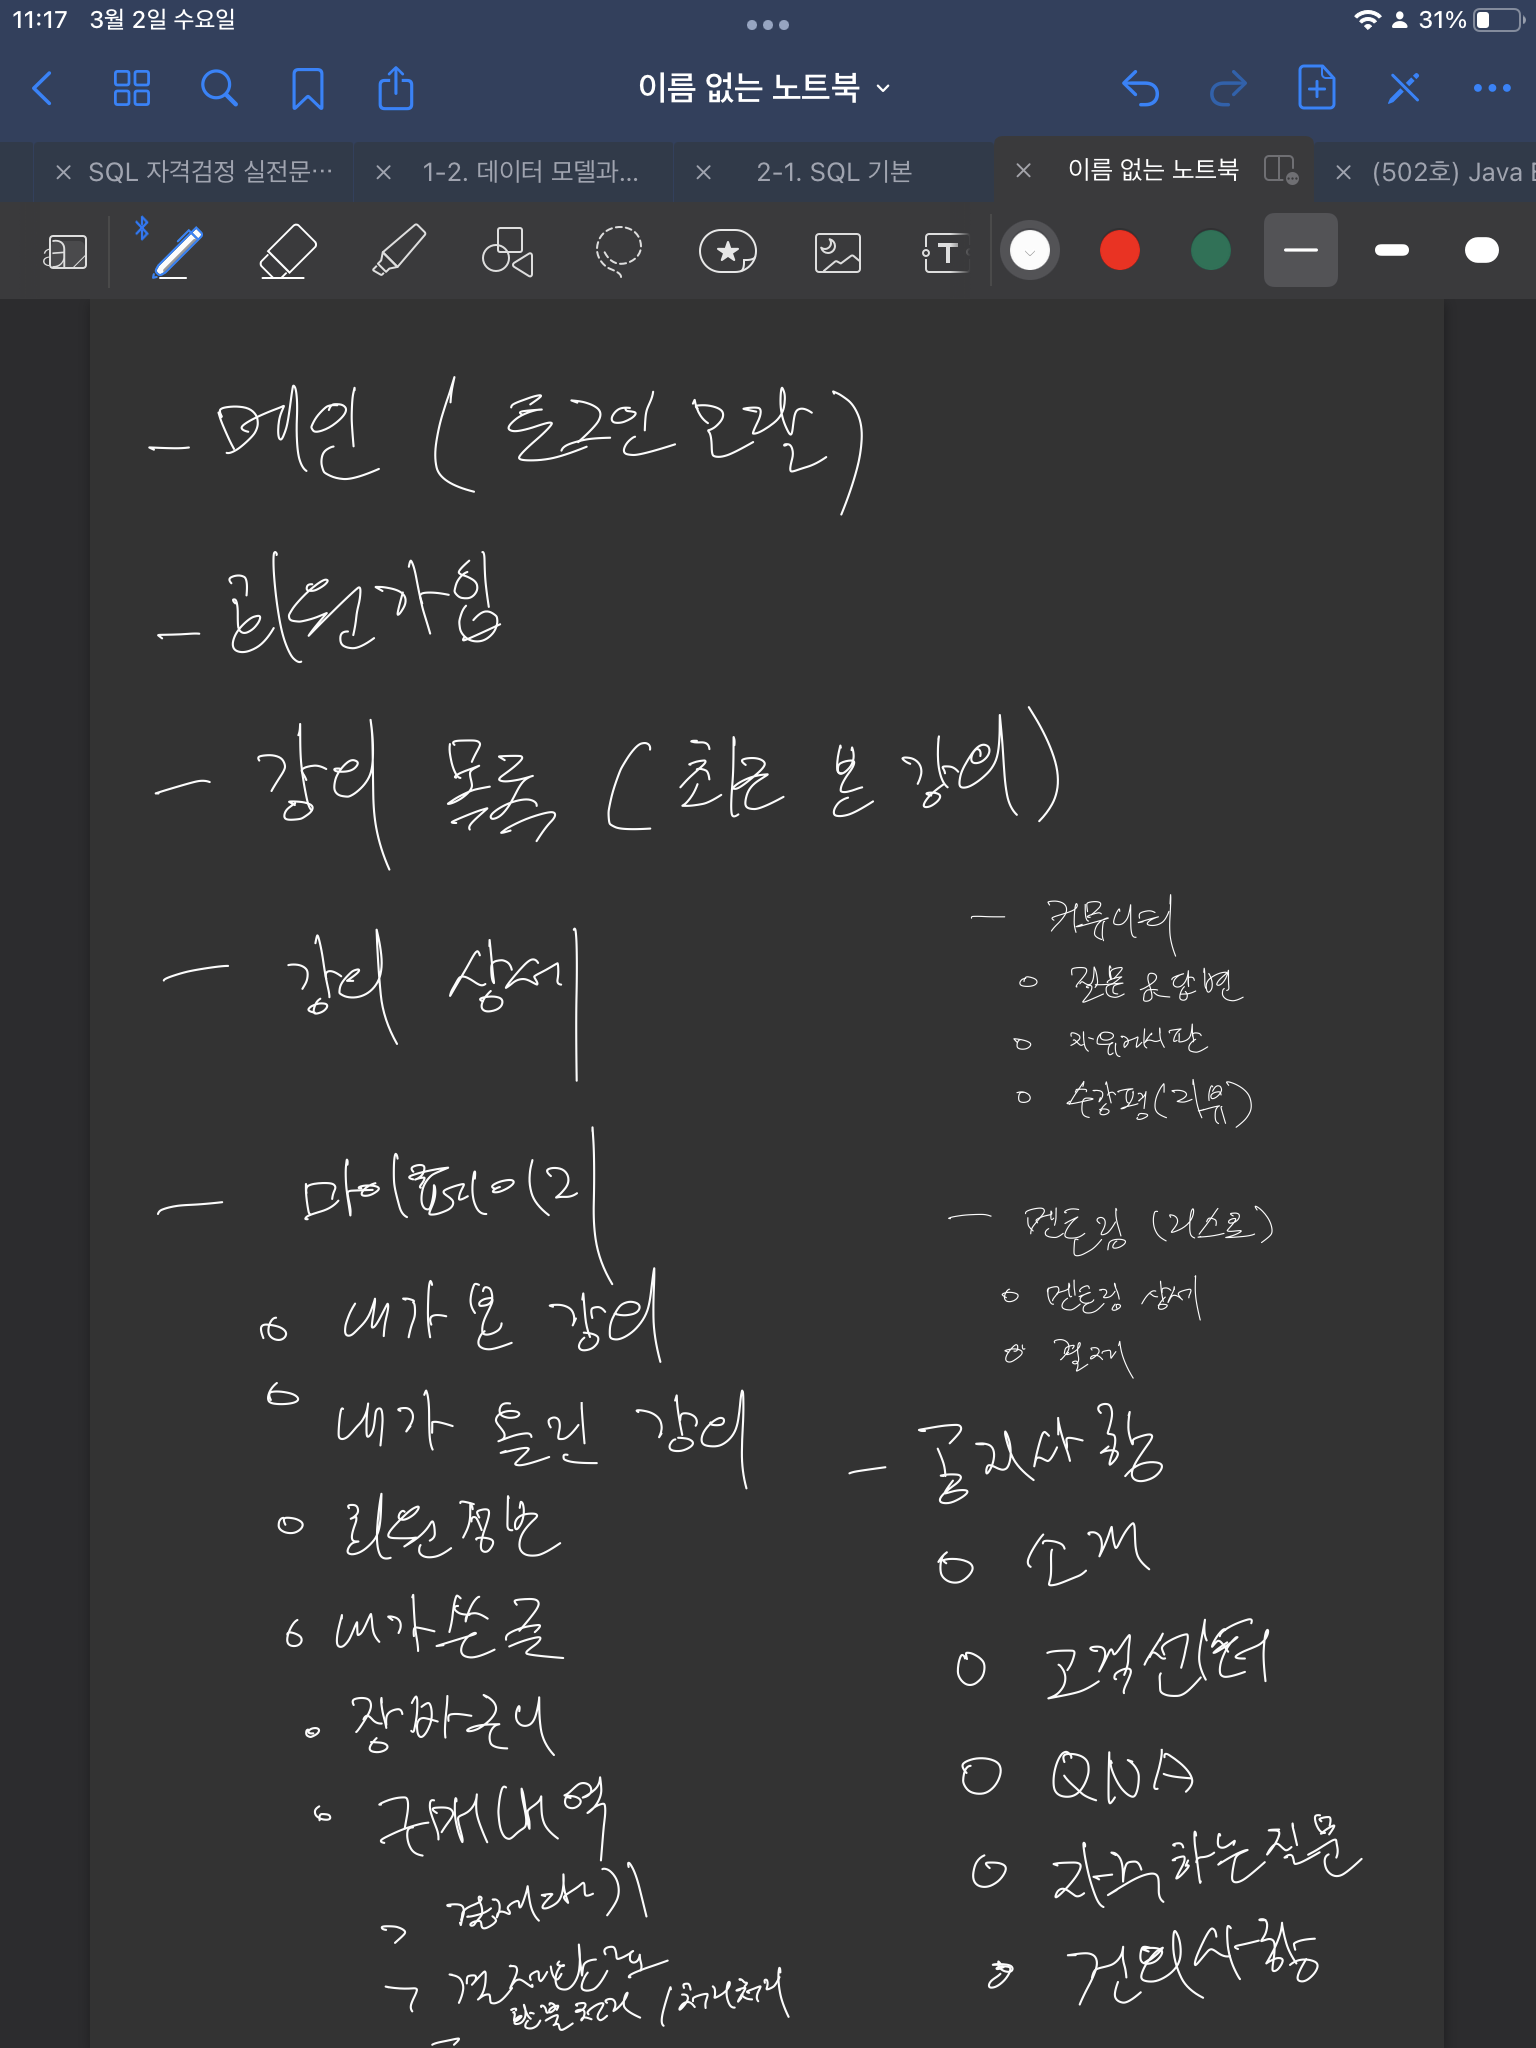 11:17 3월 2일 수요일 31%
이름 없는 노트북
SQL 자격검정 실전문… 1-2. 데이터 모델과... 2-1. SQL 기본 이름 없는 노트북 (502호) Java E
- 메인 (로그인 모달)
- 회원가입
- 강의 목록 (최근 본 강의)
- 강의 상세
- 마이페이지
o 내가 본 강의
o 내가 올린 강의
o 회원정보
o 내가 쓴 글
o 장바구니
o 구매내역
ㄱ 결제대기
ㄱ 결제완료
환불처리 / 취소처리
- 커뮤니티
o 질문 및 답변
o 자유게시판
o 수강평(리뷰)
- 멘토링 (리스트)
o 멘토링 상세
o 결제
- 공지사항
o 소개
o 고객센터
o QNA
o 자주하는질문
o 건의사항